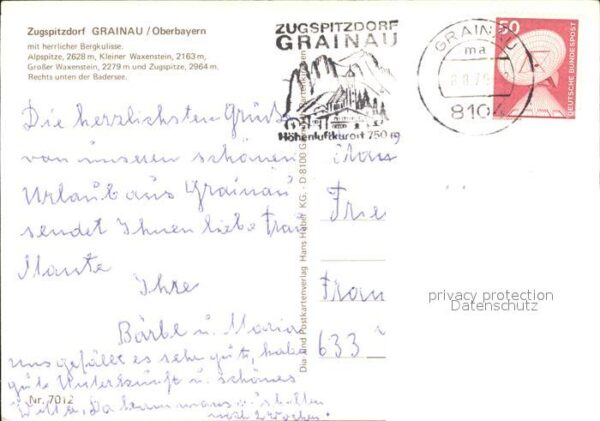 Zugspitzdorf GRAINAU/Oberbayern
mit herrlicher Bergkulisse.
Alpspitze, 2628 m, Kleiner Waxenstein, 2163 m,
Großer Waxenstein, 2279 m und Zugspitze, 2964 m.
Rechts unten der Badersee.
ZUGSPITZDORF
GRAINAU
Höhenluftkurort 750 m
GRAINAU
ma
8104
50
DEUTSCHE BUNDESPOST
Die herzlichsten Grüße
von unseren schönen
Urlaub aus Grainau
sendet Ihnen liebe Frau
Mante
Ihre
Bärbel u. Maria
uns gefällt es sehr gut, haben
gute Unterkunft u. schönes
noch 2 Wochen.
Nr. 7012
Dia und Postkartenverlag Hans Huber KG. - D 8100
Frau
633
privacy protection
Datenschutz